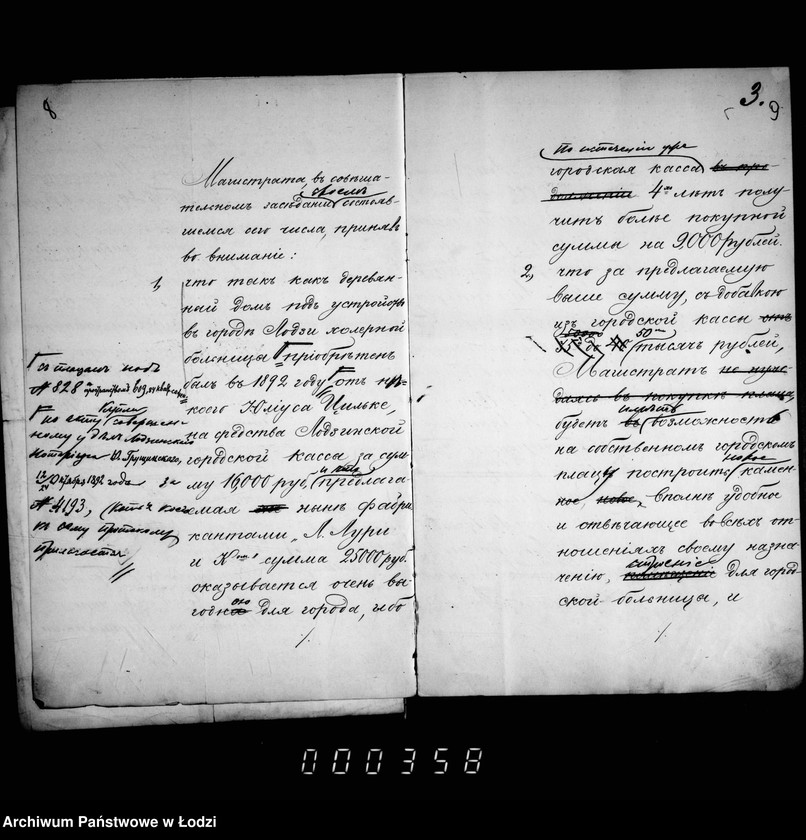 8
Магистратъ, въ совѣща-
своемъ
тельномъ засѣданіи состояв-
шемся сего числа, принявъ
во вниманіе:
1, что такъ какъ деревян-
ный домъ подъ устройство
въ городѣ Лодзи холерной
больницы пріобрѣтенъ
былъ въ 1892 году отъ нѣ-
кого Юліуса Цильке,
на средства Лодзинской
городской кассы за сум-
му 16,000 руб., предлага-
емая нынѣ фабри-
кантами, А. Лури
и Ко сумма 25000 руб.
оказывается очень вы-
годною для города, ибо
съ плацомъ подъ
№ 828
по акту купли совершен-
ному у Лодзинскаго
Нотаріуса Грущинскаго,
1892 года за
№ 4193, (копія коего
къ сему протоколу
прилагается)
3.
9
По истеченіи
городская касса
4хъ лѣтъ полу-
читъ болѣе покупной
суммы на 9000 рублей.
2, что за предлагаемую
выше сумму, съ добавкою
изъ городской кассы отъ
50ти
35 до тысячъ рублей,
Магистратъ не нуж-
даясь въ покупкѣ плаца,
имѣть
будетъ возможность
на собственномъ городскомъ
новое
плацу построить камен-
ное, новое, вполнѣ удобное
и отвѣчающее во всѣхъ от-
ношеніяхъ своему назна-
строеніе
ченію, помѣщеніе для город-
ской больницы, и
000358
Archiwum Państwowe w Łodzi